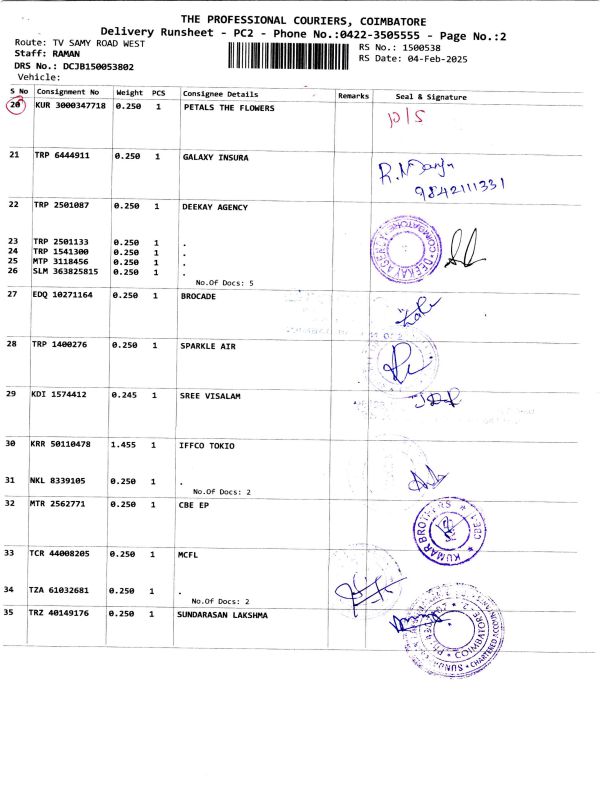 THE PROFESSIONAL COURIERS, COIMBATORE
Delivery Runsheet - PC2 - Phone No.:0422-3505555 - Page No.:2
Route: TV SAMY ROAD WEST
RS No.: 1500538
Staff: RAMAN
RS Date: 04-Feb-2025
DRS No.: DCJB150053802
Vehicle:
S No Consignment No Weight PCS Consignee Details Remarks Seal & Signature
20 KUR 3000347718 0.250 1 PETALS THE FLOWERS
D/S
21 TRP 6444911 0.250 1 GALAXY INSURA
9842111331
22 TRP 2501087 0.250 1 DEEKAY AGENCY
DEEKAY AGENCY COIMBATORE
23 TRP 2501133 0.250 1 .
24 TRP 1541300 0.250 1 .
25 MTP 3118456 0.250 1 .
26 SLM 363825815 0.250 1 .
No.Of Docs: 5
27 EDQ 10271164 0.250 1 BROCADE
28 TRP 1400276 0.250 1 SPARKLE AIR
29 KDI 1574412 0.245 1 SREE VISALAM
30 KRR 50110478 1.455 1 IFFCO TOKIO
31 NKL 8339105 0.250 1 .
No.Of Docs: 2
32 MTR 2562771 0.250 1 CBE EP
KUMAR BROTHERS * CBE-1 *
33 TCR 44008205 0.250 1 MCFL
34 TZA 61032681 0.250 1 .
No.Of Docs: 2
35 TRZ 40149176 0.250 1 SUNDARASAN LAKSHMA
COIMBATORE
CHARTERED ACCOUNTANTS